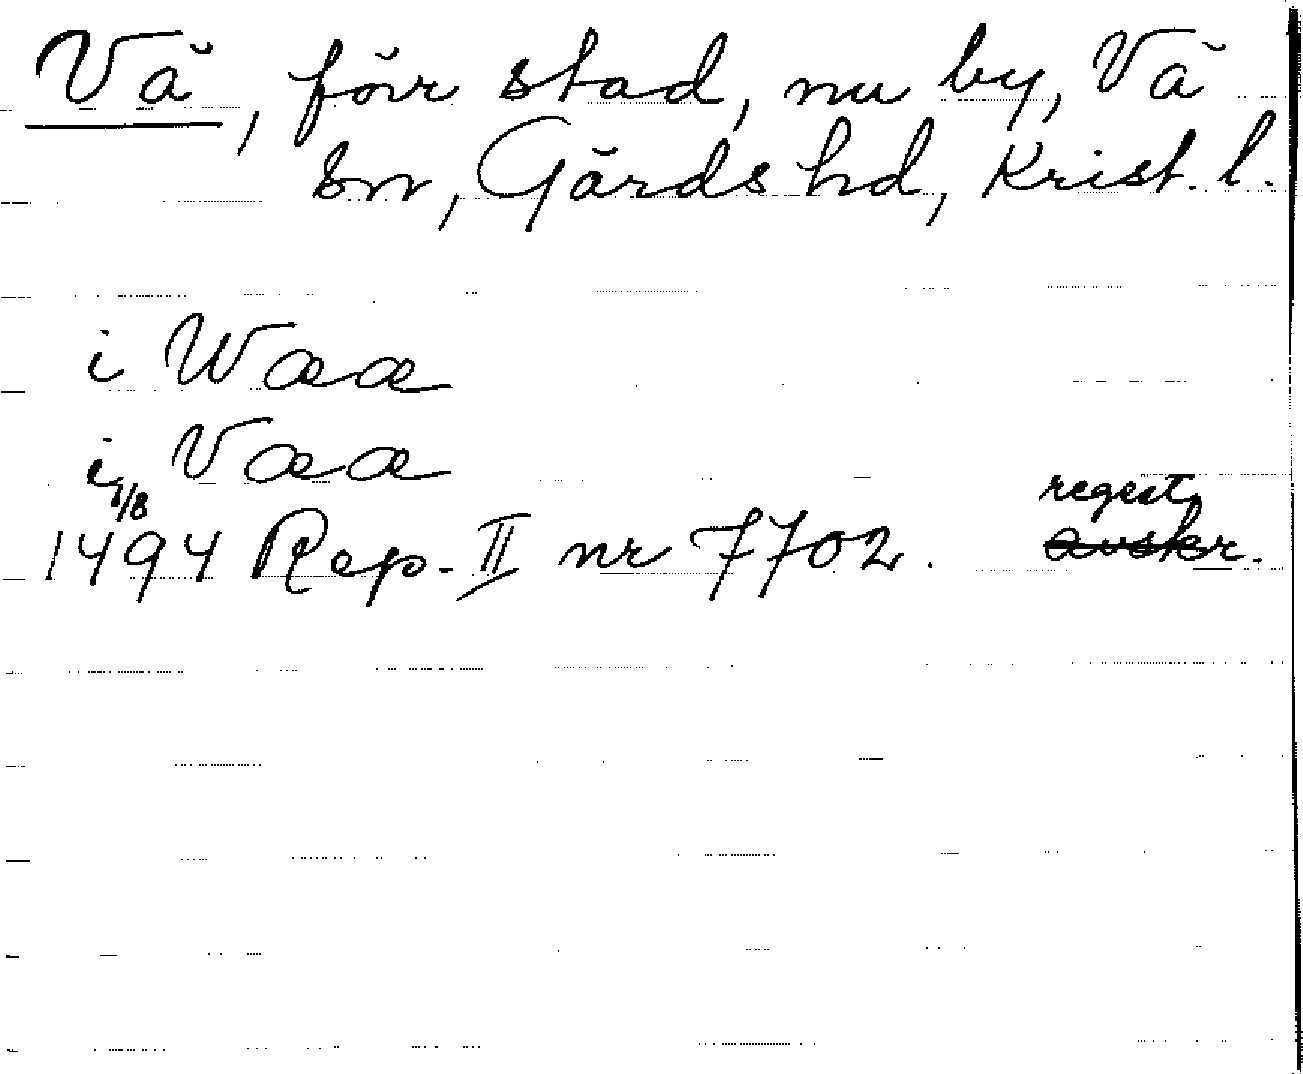 Vä, förr stad, nu by, Vä
sn, Gärds hd, Krist. l.
i Waa
i Vaa
1/8 regest
1494 Rep. II nr 7702. avskr.